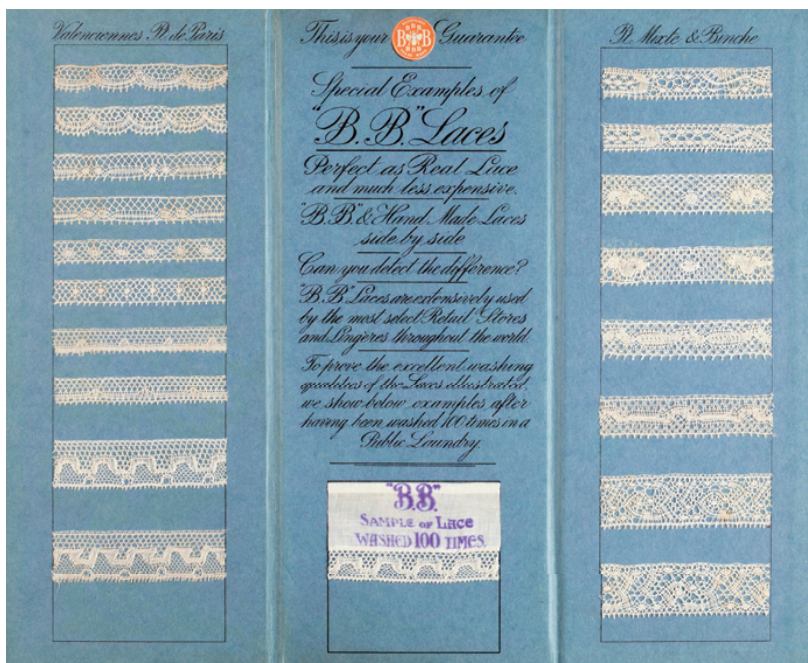 Valenciennes Pt. de Paris
This is your B B Guarantee
Special Examples of
"B.B." Laces
Perfect as Real Lace
and much less expensive.
"B.B." & Hand Made Laces
side by side
Can you detect the difference?
"B.B." Laces are extensively used
by the most select Retail Stores
and Lingères throughout the world.
To prove the excellent washing
qualities of the Laces illustrated,
we show below examples after
having been washed 100 times in a
Public Laundry.
"B.B."
SAMPLE OF LACE
WASHED 100 TIMES.
Pt. Mixte & Binche